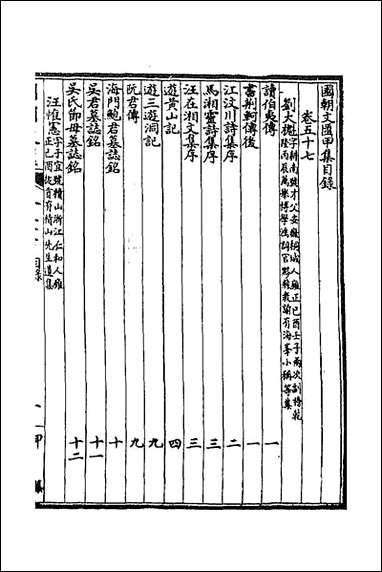 國朝文匯甲集目錄
卷五十七
劉大櫆 字耕南號才父安徽桐城人雍正己酉壬子兩次副榜乾隆丙辰薦舉博學鴻詞官黟縣教諭有海峯小稱等集
讀伯夷傳 一
書荆軻傳後 一
江汶川詩集序 二
馬湘靈詩集序 三
汪在湘文集序 三
遊黄山記 四
遊三遊洞記 九
阮君傳 九
海門鮑君墓誌銘 十
吳君墓誌銘 十一
吳氏節母墓誌銘 十二
汪惟憲 字子宜號積山浙江仁和人雍正己酉拔貢有積山先生遺集
目錄
甲集